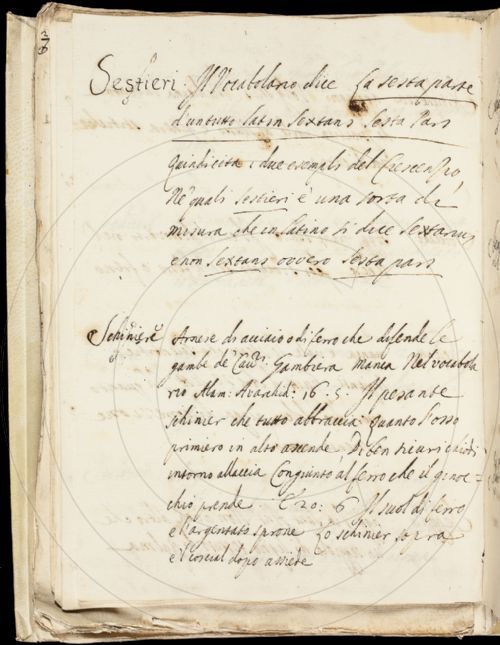 Sestieri. Il Vocabolario dice La sesta parte
d'un tutto latin Sextans Sesta Pars
Quindi cita i due esempli del Crescenzio
Ne' quali Sestieri è una sorta di
misura che in latino si dice Sextarius
e non Sextans ovvero Sesta pars
Schiniere Arnese di acciaio o di ferro che difende le
gambe de' Cavri. Gambiera manca Nel vocabola
rio Alam. Avarchid: 16. 5. Il pesante
schinier che tutto abbraccia quanto l'osso
primiero in alto ascende Di ben sicuri
intorno allaccia Congiunto al ferro che il ginoc=
chio prende E 20: 6 Il suol di ferro
e l'argentato sprone Lo schinier sopra
e'l coscial dopo assiede